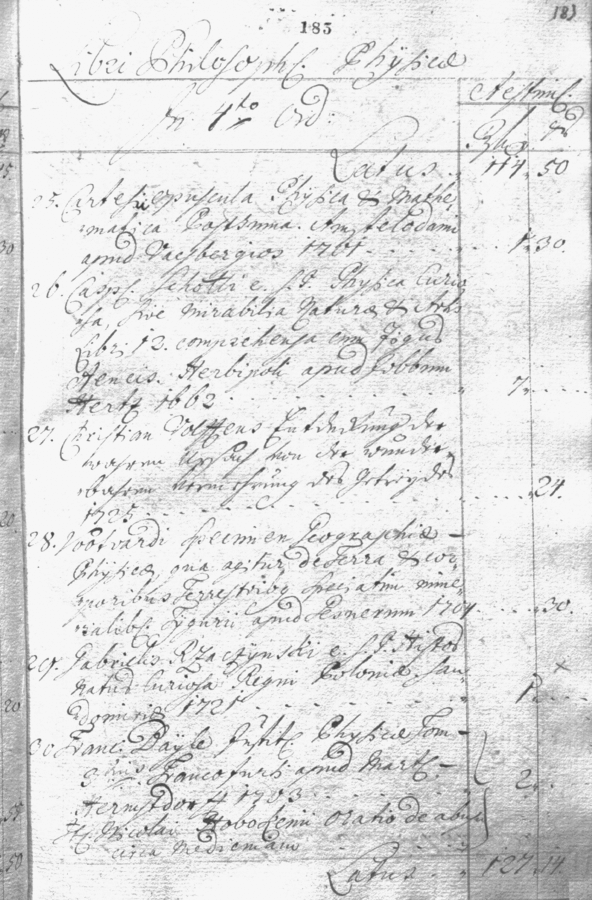 183
183
Libri Philosoph. Physicæ
Æstim.
In 4to Ord:
Latus 114 50
25. Cartesii opuscula Physica & Mathe
matica Posthuma. Amstelodami
apud 1701 1 30.
26. Casp. Schotti e. S. J. Physica Curio
sa, sive mirabilia Naturæ & Artis
Libri 12. comprehensa cum Figuris
Aeneis. Herbipoli apud Jobum
Hertz 1662 7
27. Christian Wolffens Entdeckung der
wahren Ursach von der wunder
bahren Vermehrung des Getreydes
1725 24.
28. specimen Geographiæ
Physicæ, qua agitur de Terra & cor
poribus Terrestribus speciatim mine
ralibus. Tiguri apud 1704 30.
29. Gabrielis Rzaczynski e. S. J. Histor
Natur Curiosa Regni Poloniæ. San
domiriæ 1721 1
30. Franc: Bayle Instit. Physicæ Tom
3 Francofurti apud Mart.
Hermsdorf 1703 2
It. Nicolai Hobokenii Oratio de abusu
circa Medicinam
Latus 127. 14.